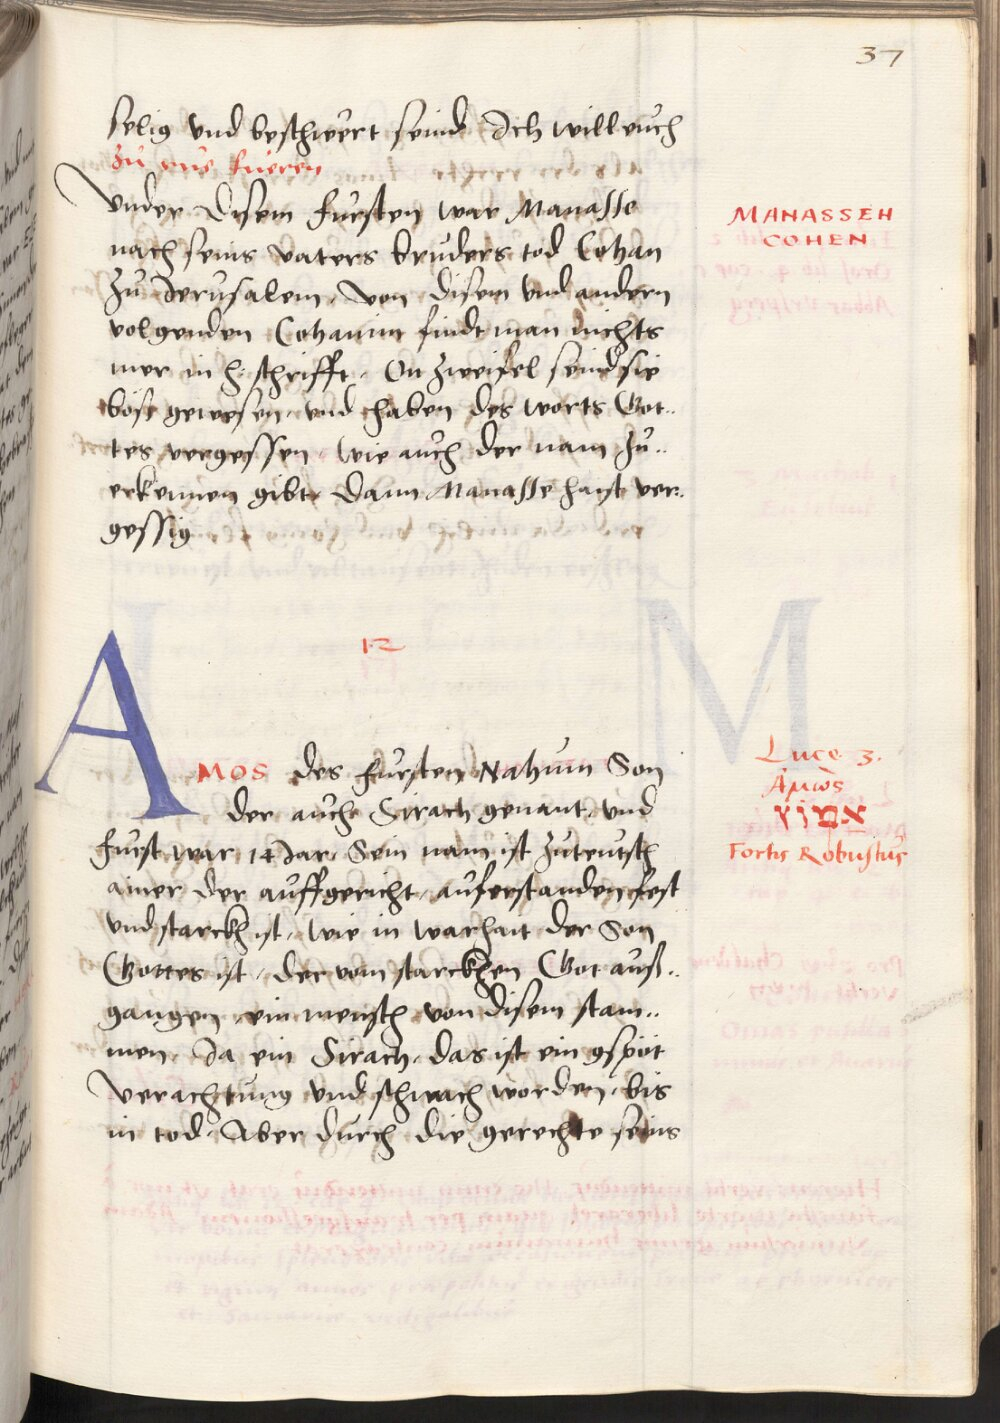 37
selig vnd beschwert seind Ich will euch
zu rue fueren
Vnder disem fursten war Manasse
nach seins vaters bruders tod Cohan
zu Jerusalem. Von disem vnd andern
volgenden Cohanim findt man nichts
mer in h: schrifft. On zweifel seind sie
böse gewesen. vnd haben des worts Got..
tes vergessen. wie auch der nam zu..
erkennen gibt. Dann Manasse haist ver..
gessig
MANASSEH
COHEN
12
AMOS des fursten Nahum Son
der auch Sirach genant. vnd
furst war 14 Jar. Sein nam ist zuteutsch
ainer der auffgericht. auferstanden fest
vnd starckh ist. wie in warhait der Son
Gottes ist. der vom starckhen Got auß..
gangen. ein mensch von disem stam..
men. Ja ein Sirach. das ist ein gspöt
verachtung vnd schwach worden. bis
in tod. Aber durch die gerechte seins
Luce 3.
Ἀμὼς
אמוץ
Fortis Robustus